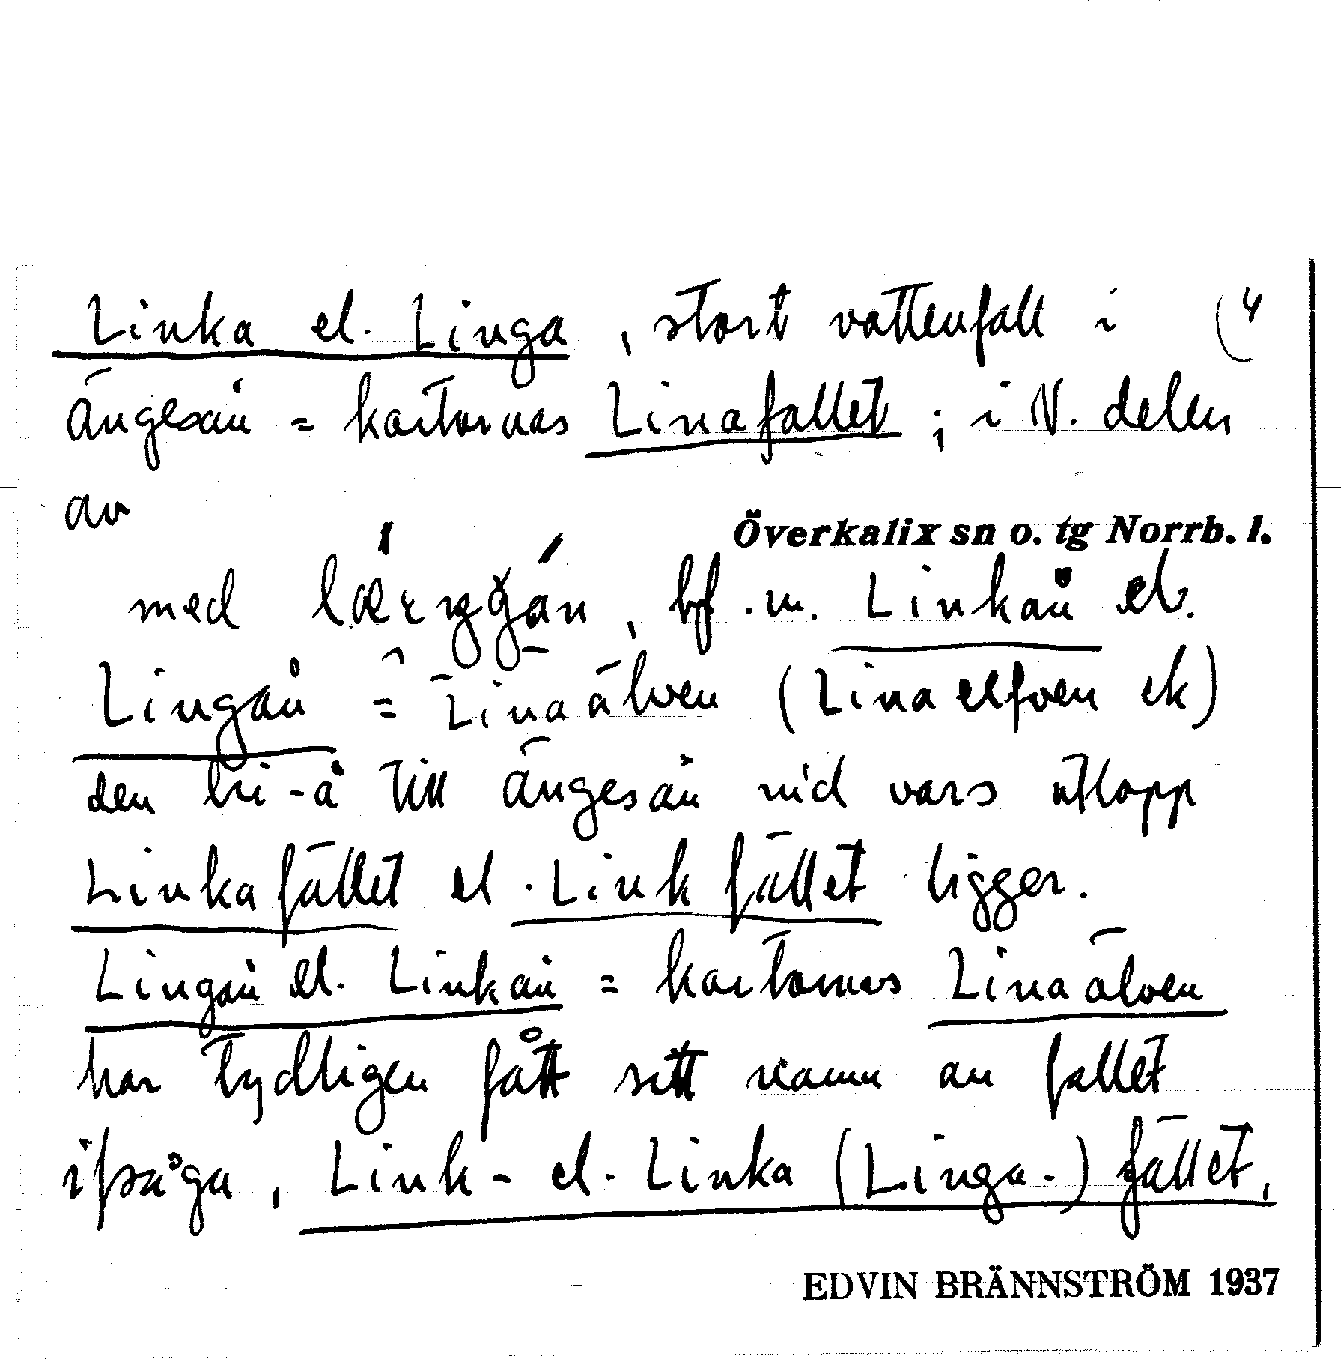 Linka el. Linga, stort vattenfall i (4
Ängesån = kartornas Linafallet; i N. delen
av
Överkalix sn o. tg Norrb. l.
med, bf. m. Linkån el.
Lingån = Linaälven (Lina elfven ek)
den bi-å till Ängesån vid vars utlopp
Linkafället el. Linkfället ligger.
Lingån el. Linkån = kartornas Linaälven
har tydligen fått sitt namn av fallet
ifråga, Link- el. Linka (Linga-) fället.
EDVIN BRÄNNSTRÖM 1937